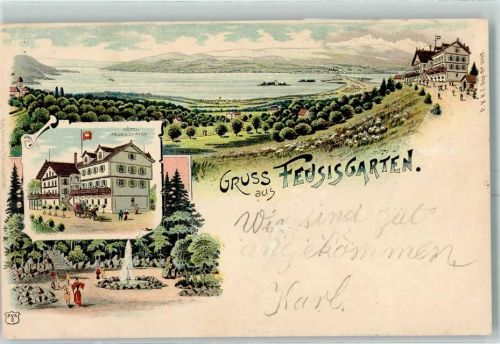 HÔTEL
FEUSISGARTEN
GRUSS
aus
FEUSISGARTEN.
Wir sind gut
angekommen
Karl.